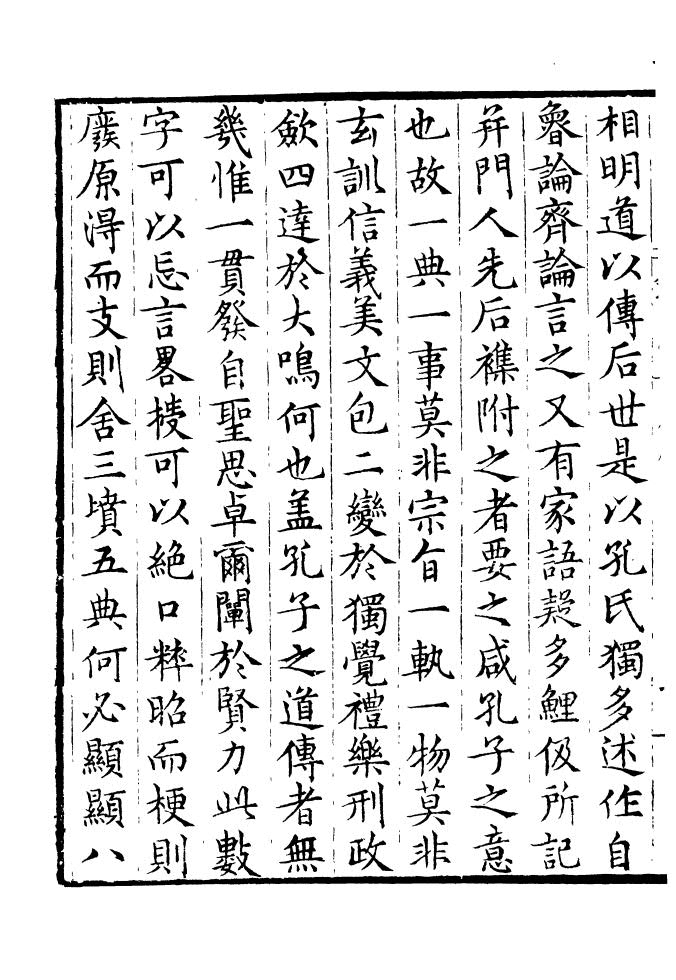 相明道以傳后世是以孔氏獨多述作自
魯論齊論言之又有家語疑多鯉伋所記
并門人先后襍附之者要之咸孔子之意
也故一典一事莫非宗旨一執一物莫非
玄訓信義美文包二變於獨覺禮樂刑政
斂四達於大鳴何也盖孔子之道傳者無
幾惟一貫發自聖思卓爾闡於賢力此數
字可以忘言畧㮄可以絶口粹昭而梗則
廢原淂而支則舍三墳五典何必顯顯八